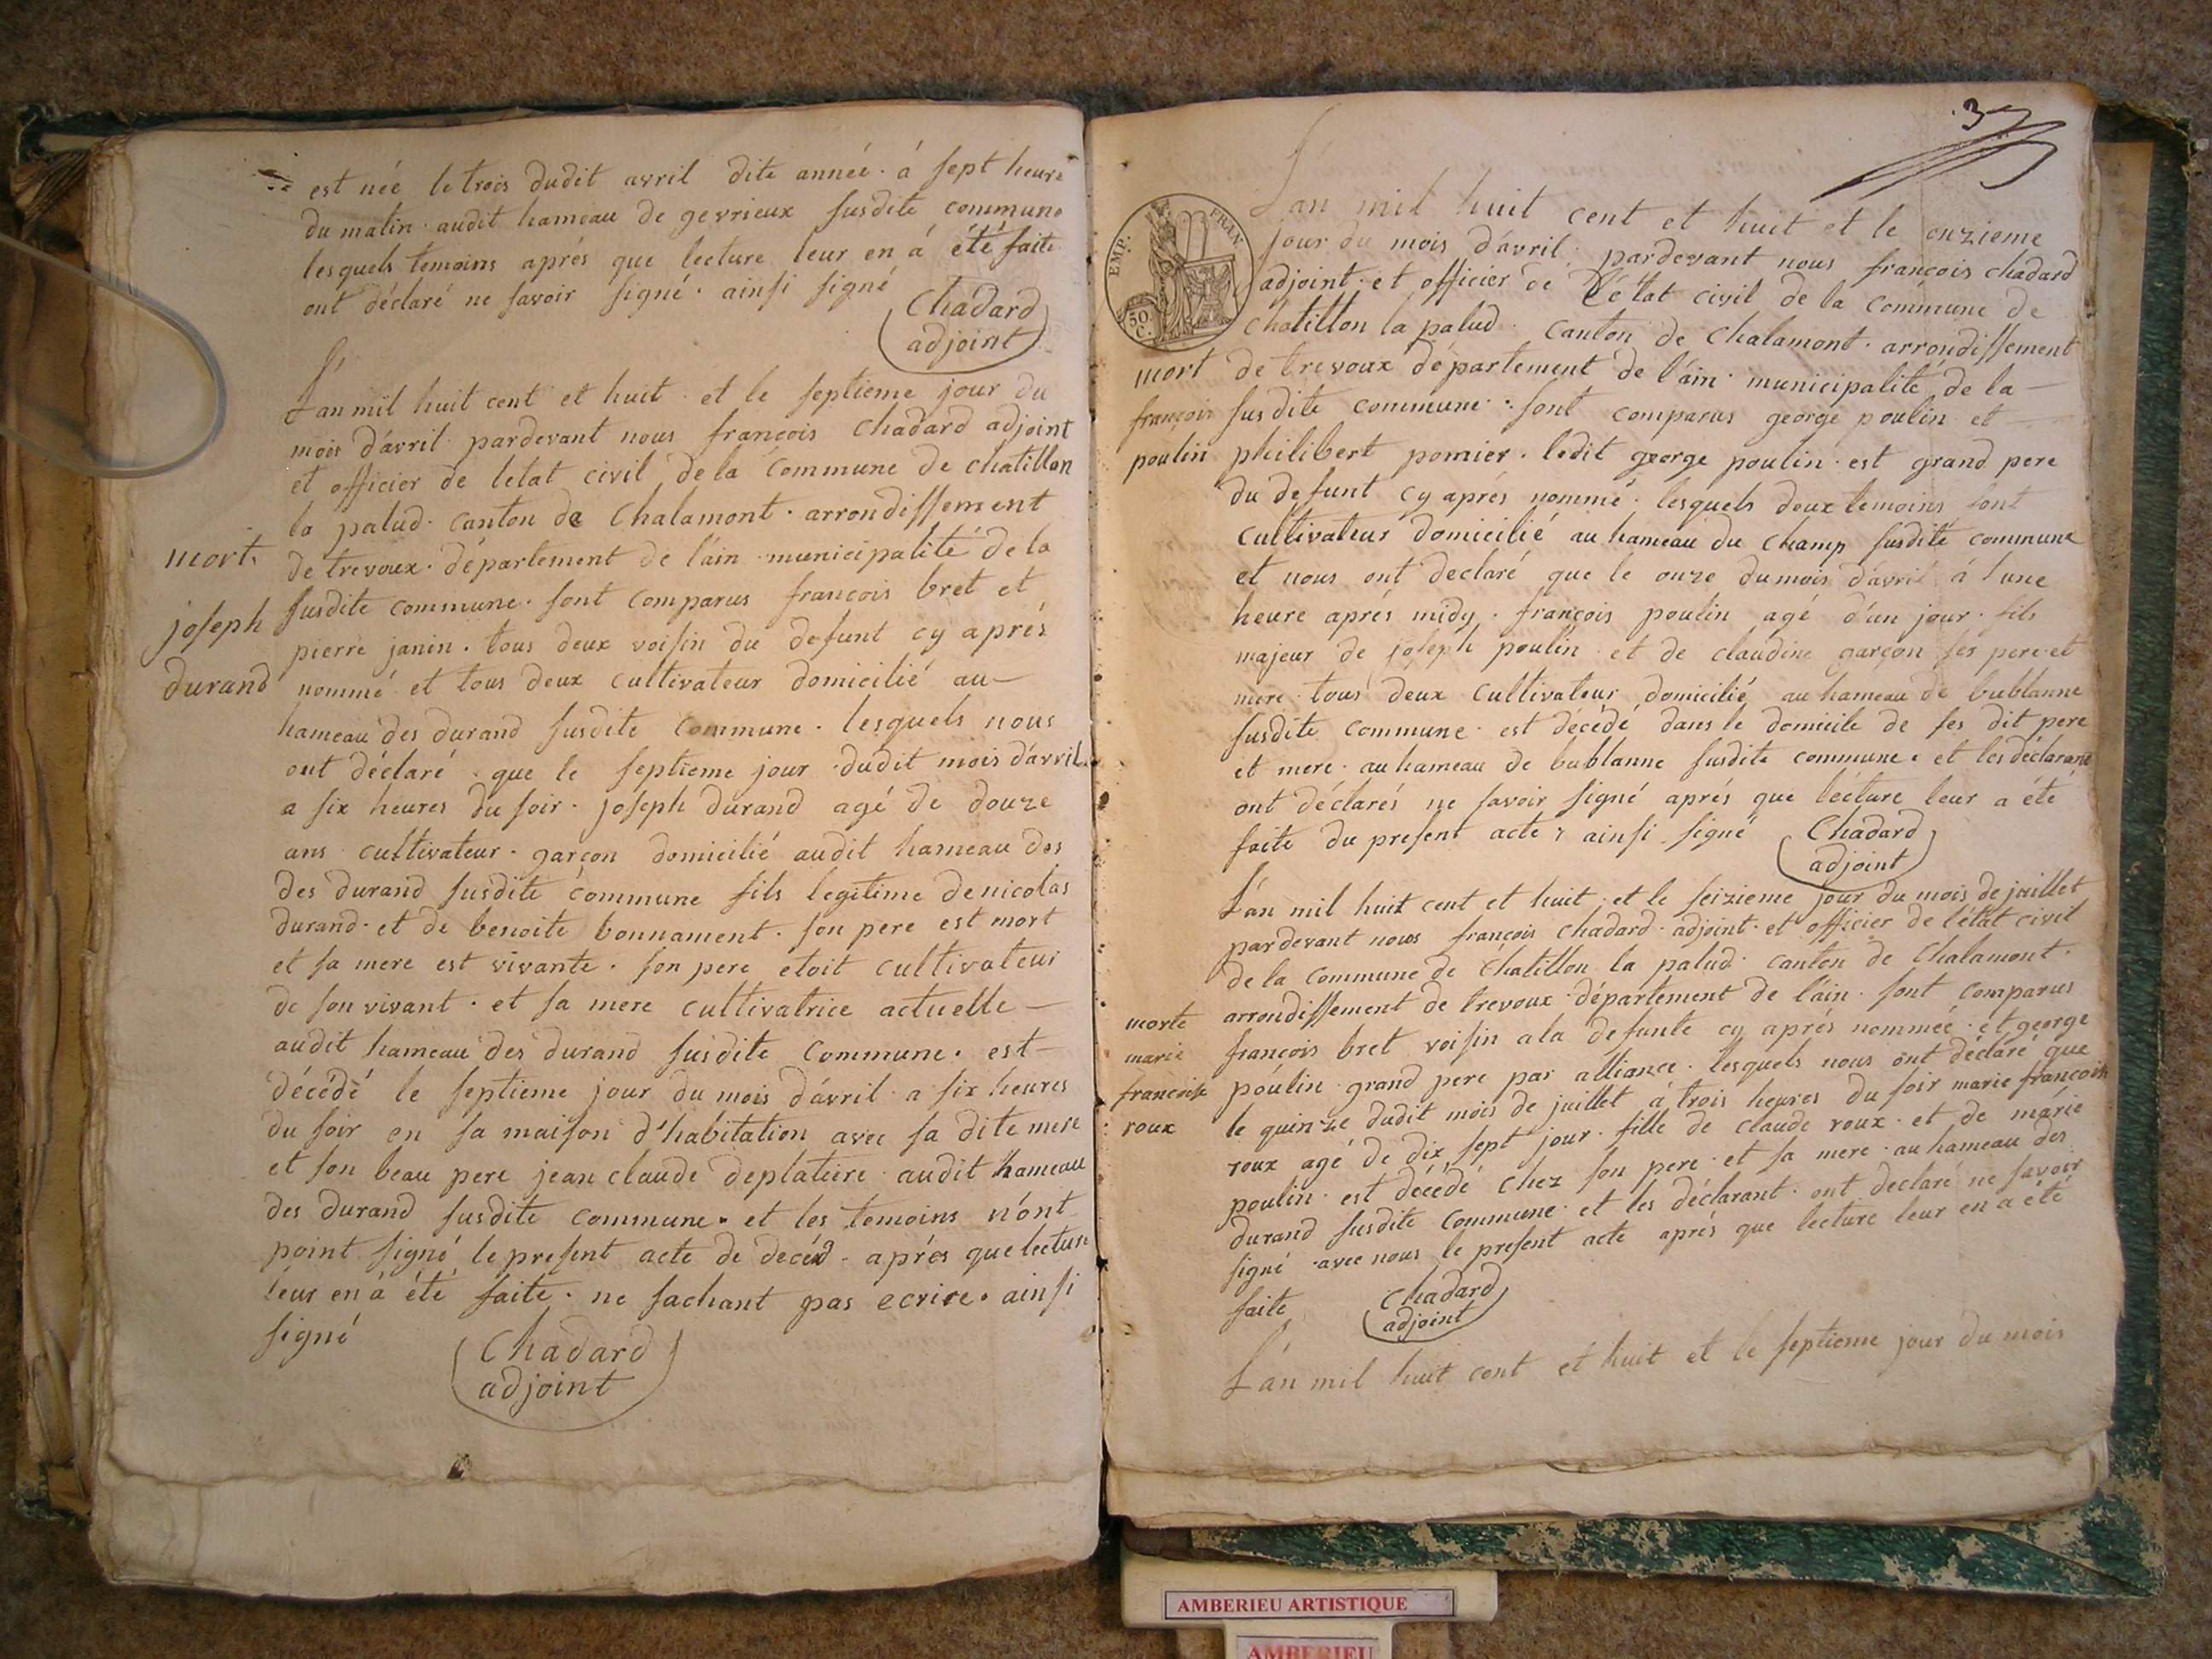 est née le trois dudit avril dite année. á sept heure
du matin. audit hameau de gevrieux susdite commune
lesquels temoins aprés que lecture leur en á été faite
ont déclaré ne savoir signé. ainsi signé
Chadard
adjoint
L'an mil huit cent et huit. et le septieme jour du
mois d'avril. pardevant nous françois Chadard adjoint
et officier de letat civil de la Commune de chatillon
la palud. canton de Chalamont. arrondissement
mort.
de trevoux. département de l'ain. municipalité de la
joseph
susdite commune. sont comparus françois bret et
pierre janin. tous deux voisin du defunt cy aprés
durand
nommé. et tous deux cultivateur domicilié au
hameau des durand susdite commune. lesquels nous
ont déclaré. que le septieme jour. dudit mois d'avril.
a six heures du soir. joseph durand agé de douze
ans cultivateur. garçon domicilié audit hameau des
des durand susdite commune fils legitime de nicolas
durand. et de benoite bonnament. son pere est mort
et sa mere est vivante. son pere etoit cultivateur
de son vivant. et sa mere cultivatrice actuelle
audit hameau des durand susdite commune. est
décédé le septieme jour du mois d'avril. a six heures
du soir en sa maison d'habitation avec sa dite mere
et son beau pere jean claude deplatiere. audit hameau
des durand susdite commune. et les temoins n'ont
point signé le present acte de decéd. aprés que lecture
leur en á été faite. ne sachant pas ecrire. ainsi
signé
Chadard
adjoint
37
EMP. FRAN.
50.
C.
L'an mil huit cent et huit et le onzieme
jour du mois d'avril. pardevant nous françois chadard
adjoint. et officier de l'état civil de la commune de
chatillon la palud. canton de chalamont. arrondissement
mort
de trevoux département de l'ain. municipalité de la
françois
susdite commune. sont comparus george poulin et
poulin
philibert pomier. ledit george poulin. est grand pere
du defunt cy aprés nommé. lesquels deux temoins sont
cultivateurs domicilié au hameau du Champ susdite commune
et nous ont declaré que le onze du mois d'avril á l'une
heure aprés midy. françois poulin agé d'un jour. fils
majeur de joseph poulin. et de claudine garçon ses pere et
mere. tous deux cultivateur domicilié au hameau de bublanne
susdite commune. est décédé dans le domicile de ses dit pere
et mere. au hameau de bublanne susdite commune. et les déclarant
ont déclarés ne savoir signé aprés que lécture leur a été
faite du present acte. ainsi signé
Chadard
adjoint
L'an mil huit cent et huit. et le seizieme jour du mois de juillet
pardevant nous françois chadard. adjoint. et officier de l'état civil
de la commune de Chatillon la palud. canton de Chalamont.
arrondissement de trevoux. département de l'ain. sont comparus
morte
françois bret voisin a la defunte cy aprés nommée. et george
marie
poulin. grand pere par alliance. lesquels nous ont déclaré que
francoise
le quinze dudit mois de juillet á trois heures du soir marie francoise
roux
roux agé de dix sept jour. fille de claude roux. et de marie
poulin. est décédé chez son pere. et sa mere. au hameau des
durand susdite commune. et les déclarant. ont declaré ne savoir
signé. avec nous le present acte aprés que lecture leur en a été
faite
Chadard
adjoint
L'an mil huit cent et huit et le septieme jour du mois
AMBERIEU ARTISTIQUE
AMBERIEU